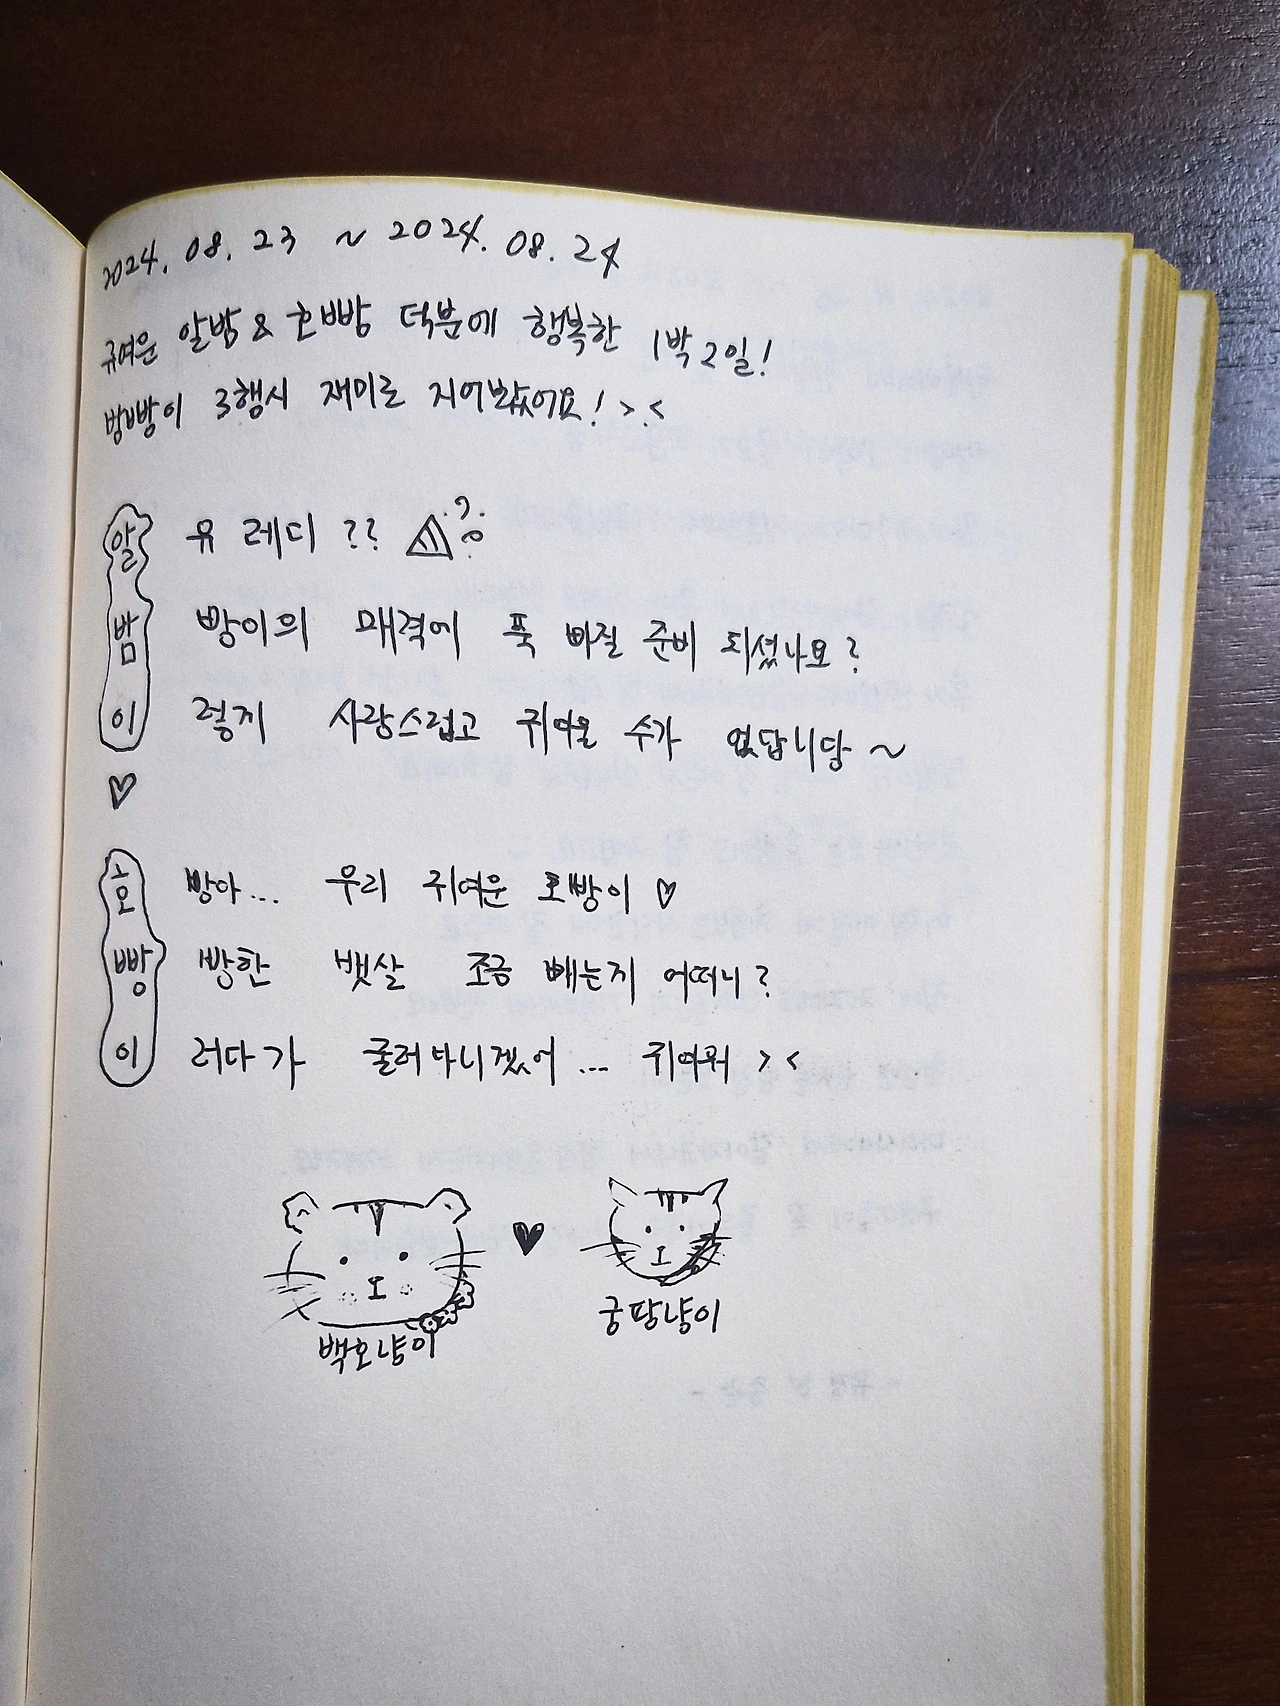 2024. 08. 23 ~ 2024. 08. 24
귀여운 알밤 & 호빵 덕분에 행복한 1박 2일!
빵빵이 3행시 재미로 지어봤어요! > <
알 유 레디 ??
밤 빵이의 매력에 푹 빠질 준비 되셨나요?
이 렇게 사랑스럽고 귀여울 수가 없답니당 ~
♡
호 빵아... 우리 귀여운 호빵이 ♡
빵 빵한 뱃살 조금 빼는게 어떠니?
이 러다가 굴러다니겠어 ... 귀여워 > <
♥
백호냥이
궁팡냥이